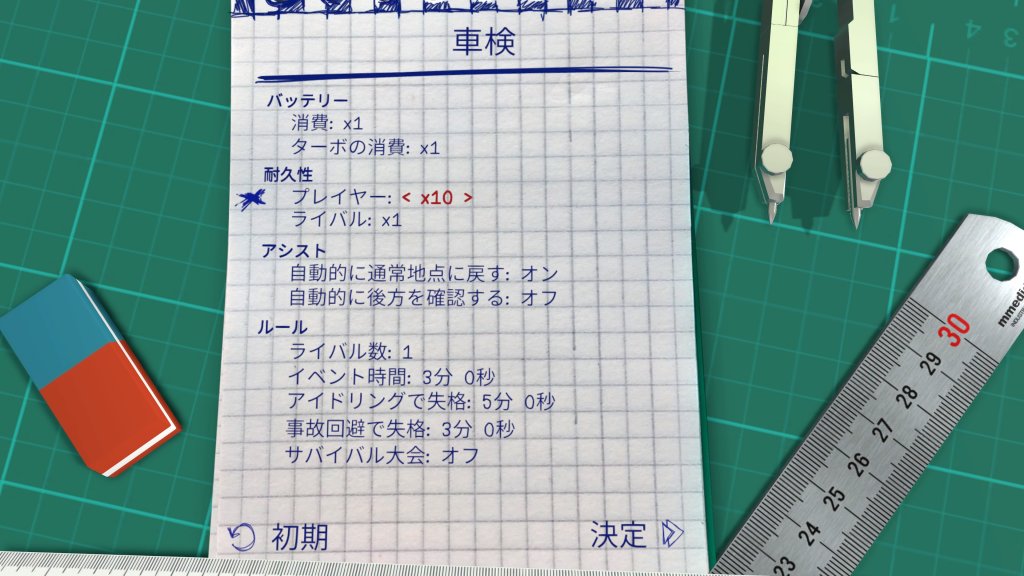 車検
バッテリー
消費: x1
ターボの消費: x1
耐久性
プレイヤー: < x10 >
ライバル: x1
アシスト
自動的に通常地点に戻す: オン
自動的に後方を確認する: オフ
ルール
ライバル数: 1
イベント時間: 3分 0秒
アイドリングで失格: 5分 0秒
事故回避で失格: 3分 0秒
サバイバル大会: オフ
初期
決定
30
29
28
27
26
25
24
23